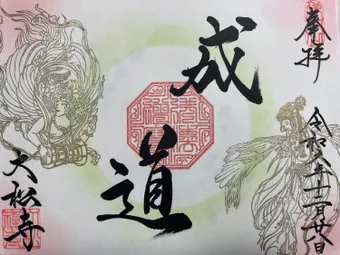 奉拝
成道
令和六年十二月廿八日
大松寺